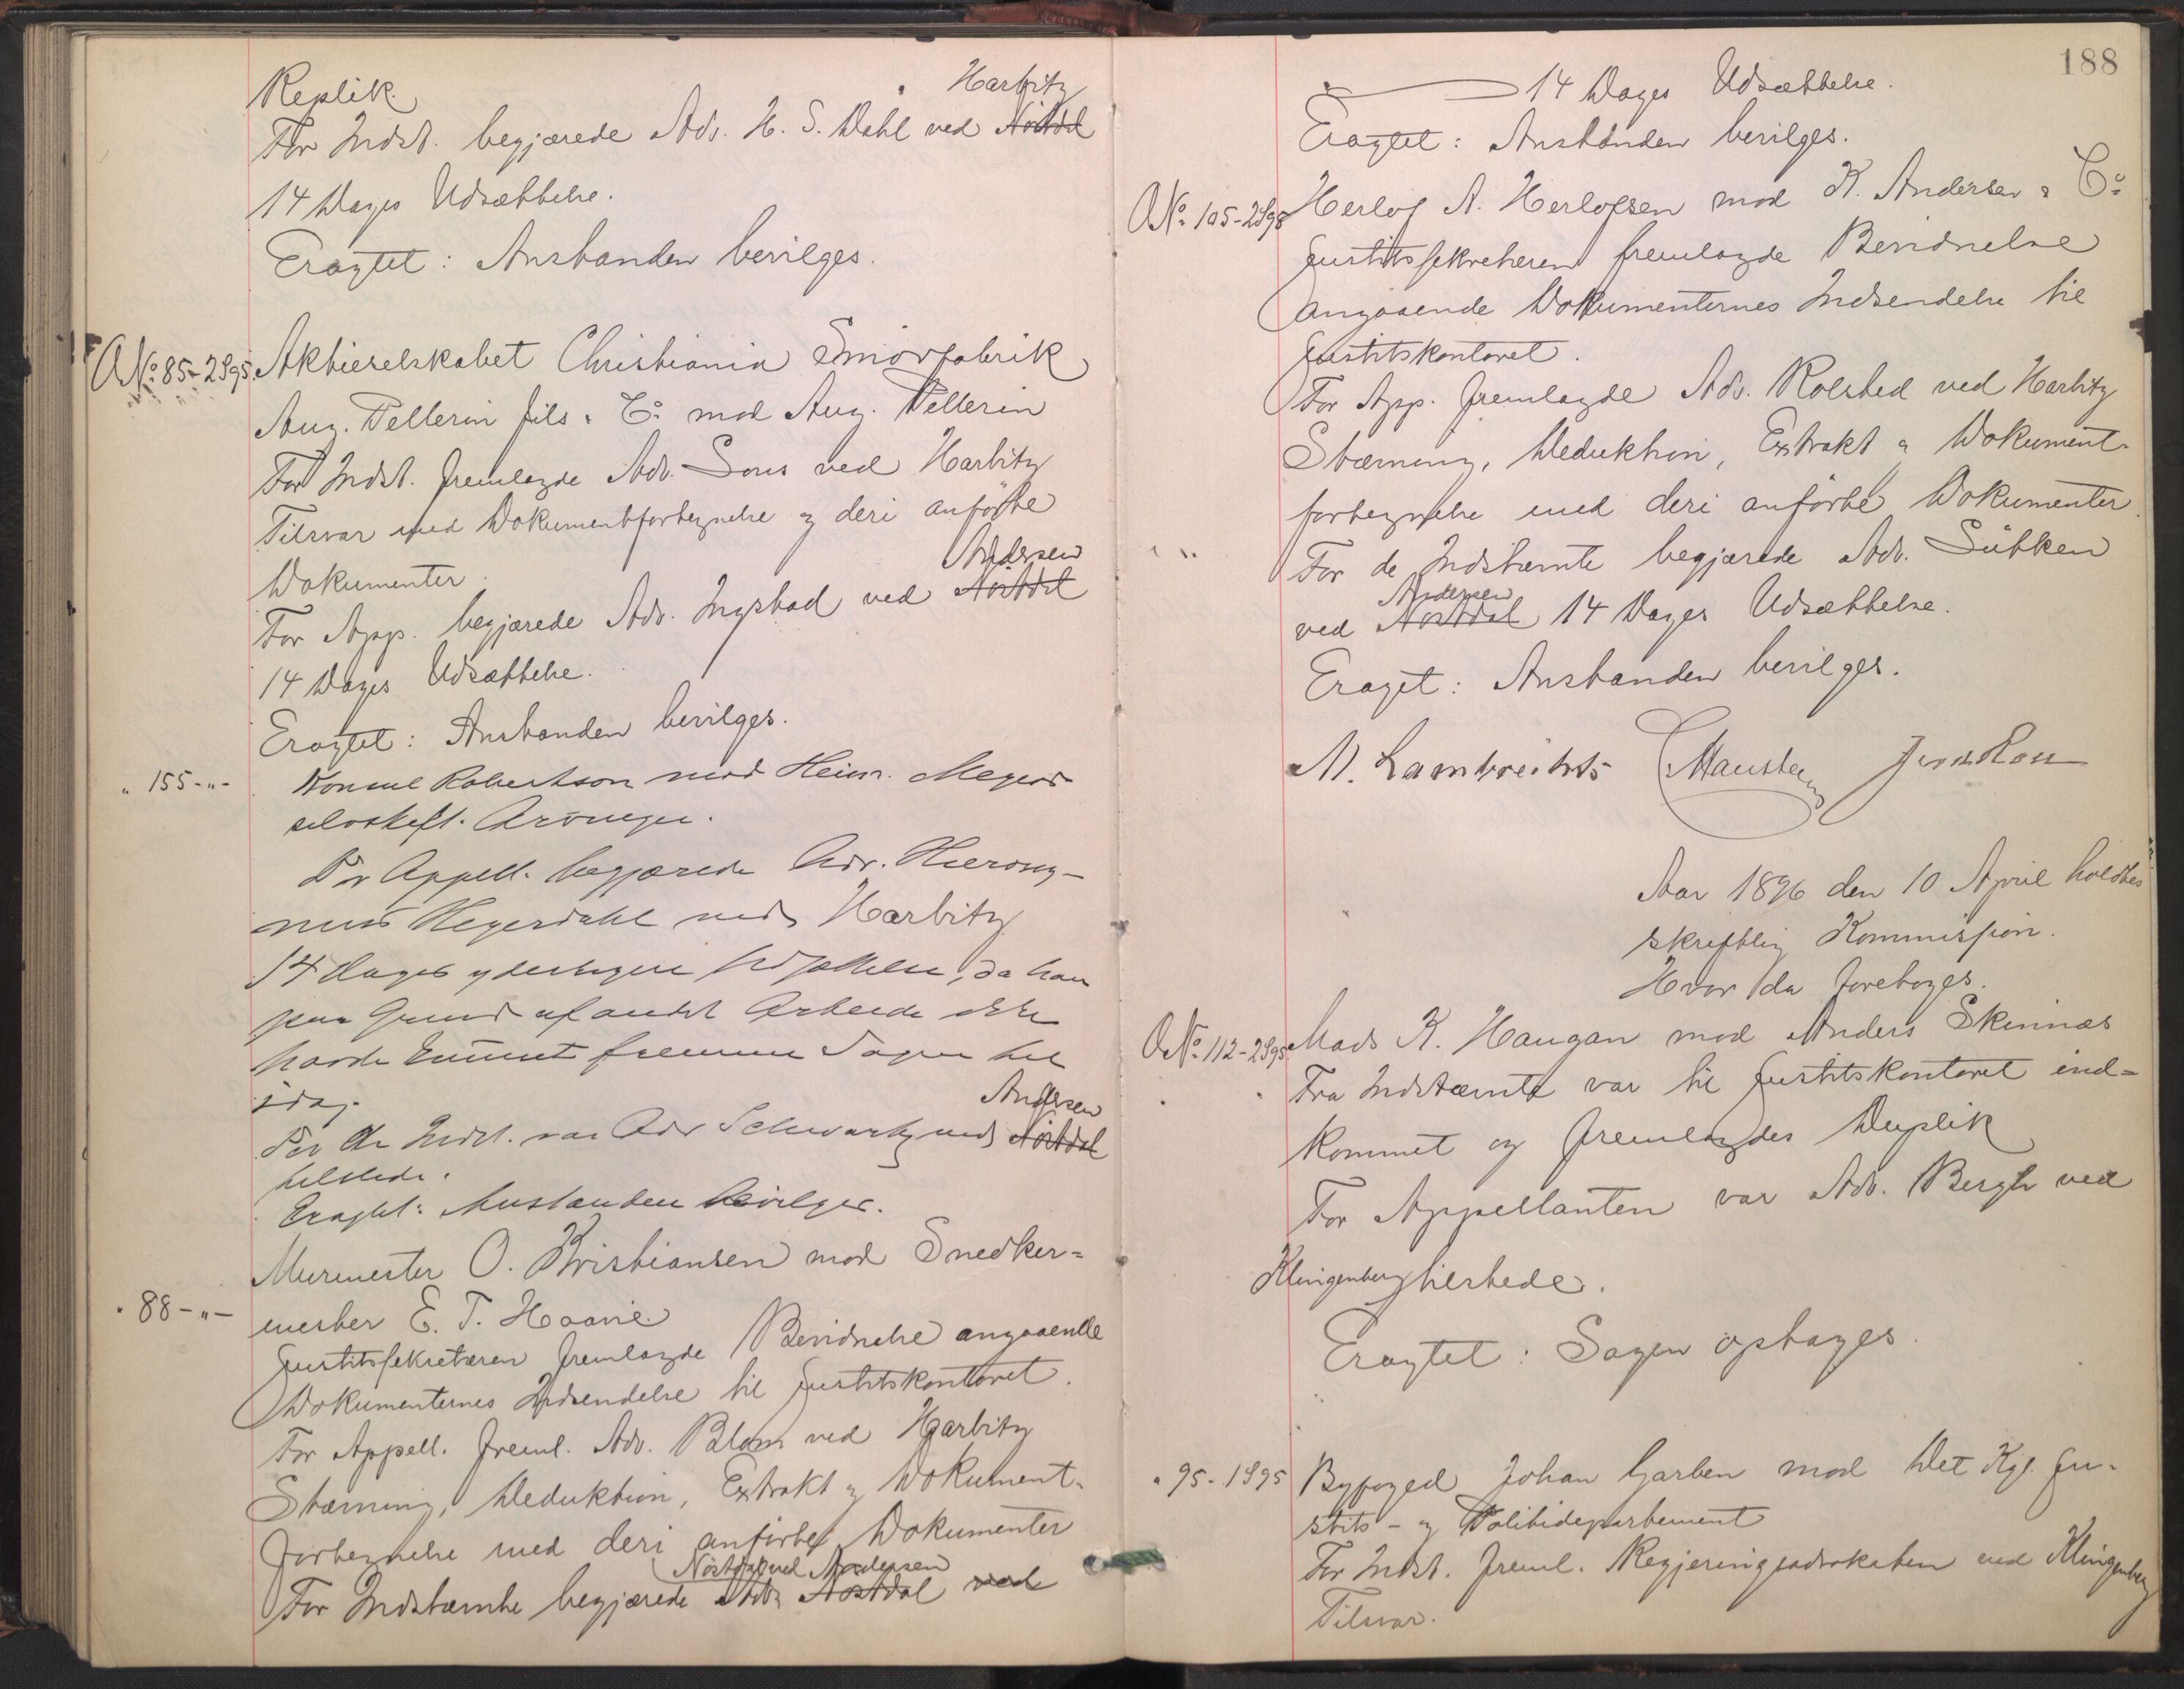 Replik.
Harbitz
For Indst. begjærede Adv. H. S. Dahl ved Nöstdal
14 Dages Udsættelse.
Eragtet: Anstanden bevilges.
A No. 85-2S95. Aktieselskabet Christiania Smörfabrik
Aug. Pellerin fils & Co. mod Aug. Pellerin
For Indst. fremlagde Adv. Lous ved Harbitz
Tilsvar med Dokumentfortegnelse og deri anförte
Dokumenter.
Andersen
For App. begjærede Adv. Ingstad ved Nöstdal
14 Dages Udsættelse.
Eragtet: Anstanden bevilges.
" 155-"- Konsul Robertson mod Heinr. Meyers
selvskift. Arvinger.
For Appell. begjærede Adv. Hierony-
mus Heyerdahl ved Harbitz
14 Dages yderligere Udsættelse, da han
paa Grund af andet Arbeide ikke
havde kunnet fremme Sagen til
idag.
Andersen
For de Indst. var Adv Schwartz ved Nöstdal
tilstede.
Eragtet: Anstanden bevilges.
Murmester O. Kristiansen mod Snedker=
" 88-"- mester E. T. Haavie.
Justitssekretæren fremlagde Bevidnelse angaaende
Dokumenternes Indsendelse til Justitskontoret.
For Appell. freml. Adv. Blom ved Harbitz
Stævning, Deduktion, Extrakt og Dokument-
fortegnelse med deri anförte Dokumenter
Nöstdal ved Andersen
For Indstævnte begjærede Adv. Nöstdal ved
188
14 Dages Udsættelse.
Eragtet: Anstanden bevilges.
A No. 105-2S98 Herlof A. Herlofsen mod K. Andersen & Co.
Justitssekretæren fremlagde Bevidnelse
angaaende Dokumenternes Indsendelse til
Justitskontoret.
For App. fremlagde Adv. Rolsted ved Harbitz
Stævning, Deduktion, Extrakt og Dokument-
fortegnelse med deri anförte Dokumenter.
For de Indstævnte begjærede Adv. Lübken
Andersen
ved Nöstdal 14 Dages Udsættelse.
Eragtet: Anstanden bevilges.
M. Lambrechts
Aar 1896 den 10 April holdtes
skriftlig Kommission.
Hvor da foretoges.
A No. 112-2S95 Mads K. Haugan mod Anders Skinnæs
Fra Indstævnte var til Justitskontoret ind=
kommet og fremlagdes Duplik
For Appellanten var Adv. Bergh ved
Klingenberg tilstede.
Eragtet: Sagen optages.
" 95-1S95 Byfoged Johan Garben mod Det Kgl. Ju-
stits- og Politidepartement
For Indst. freml. Regjeringsadvokaten ved Klingenberg
Tilsvar.